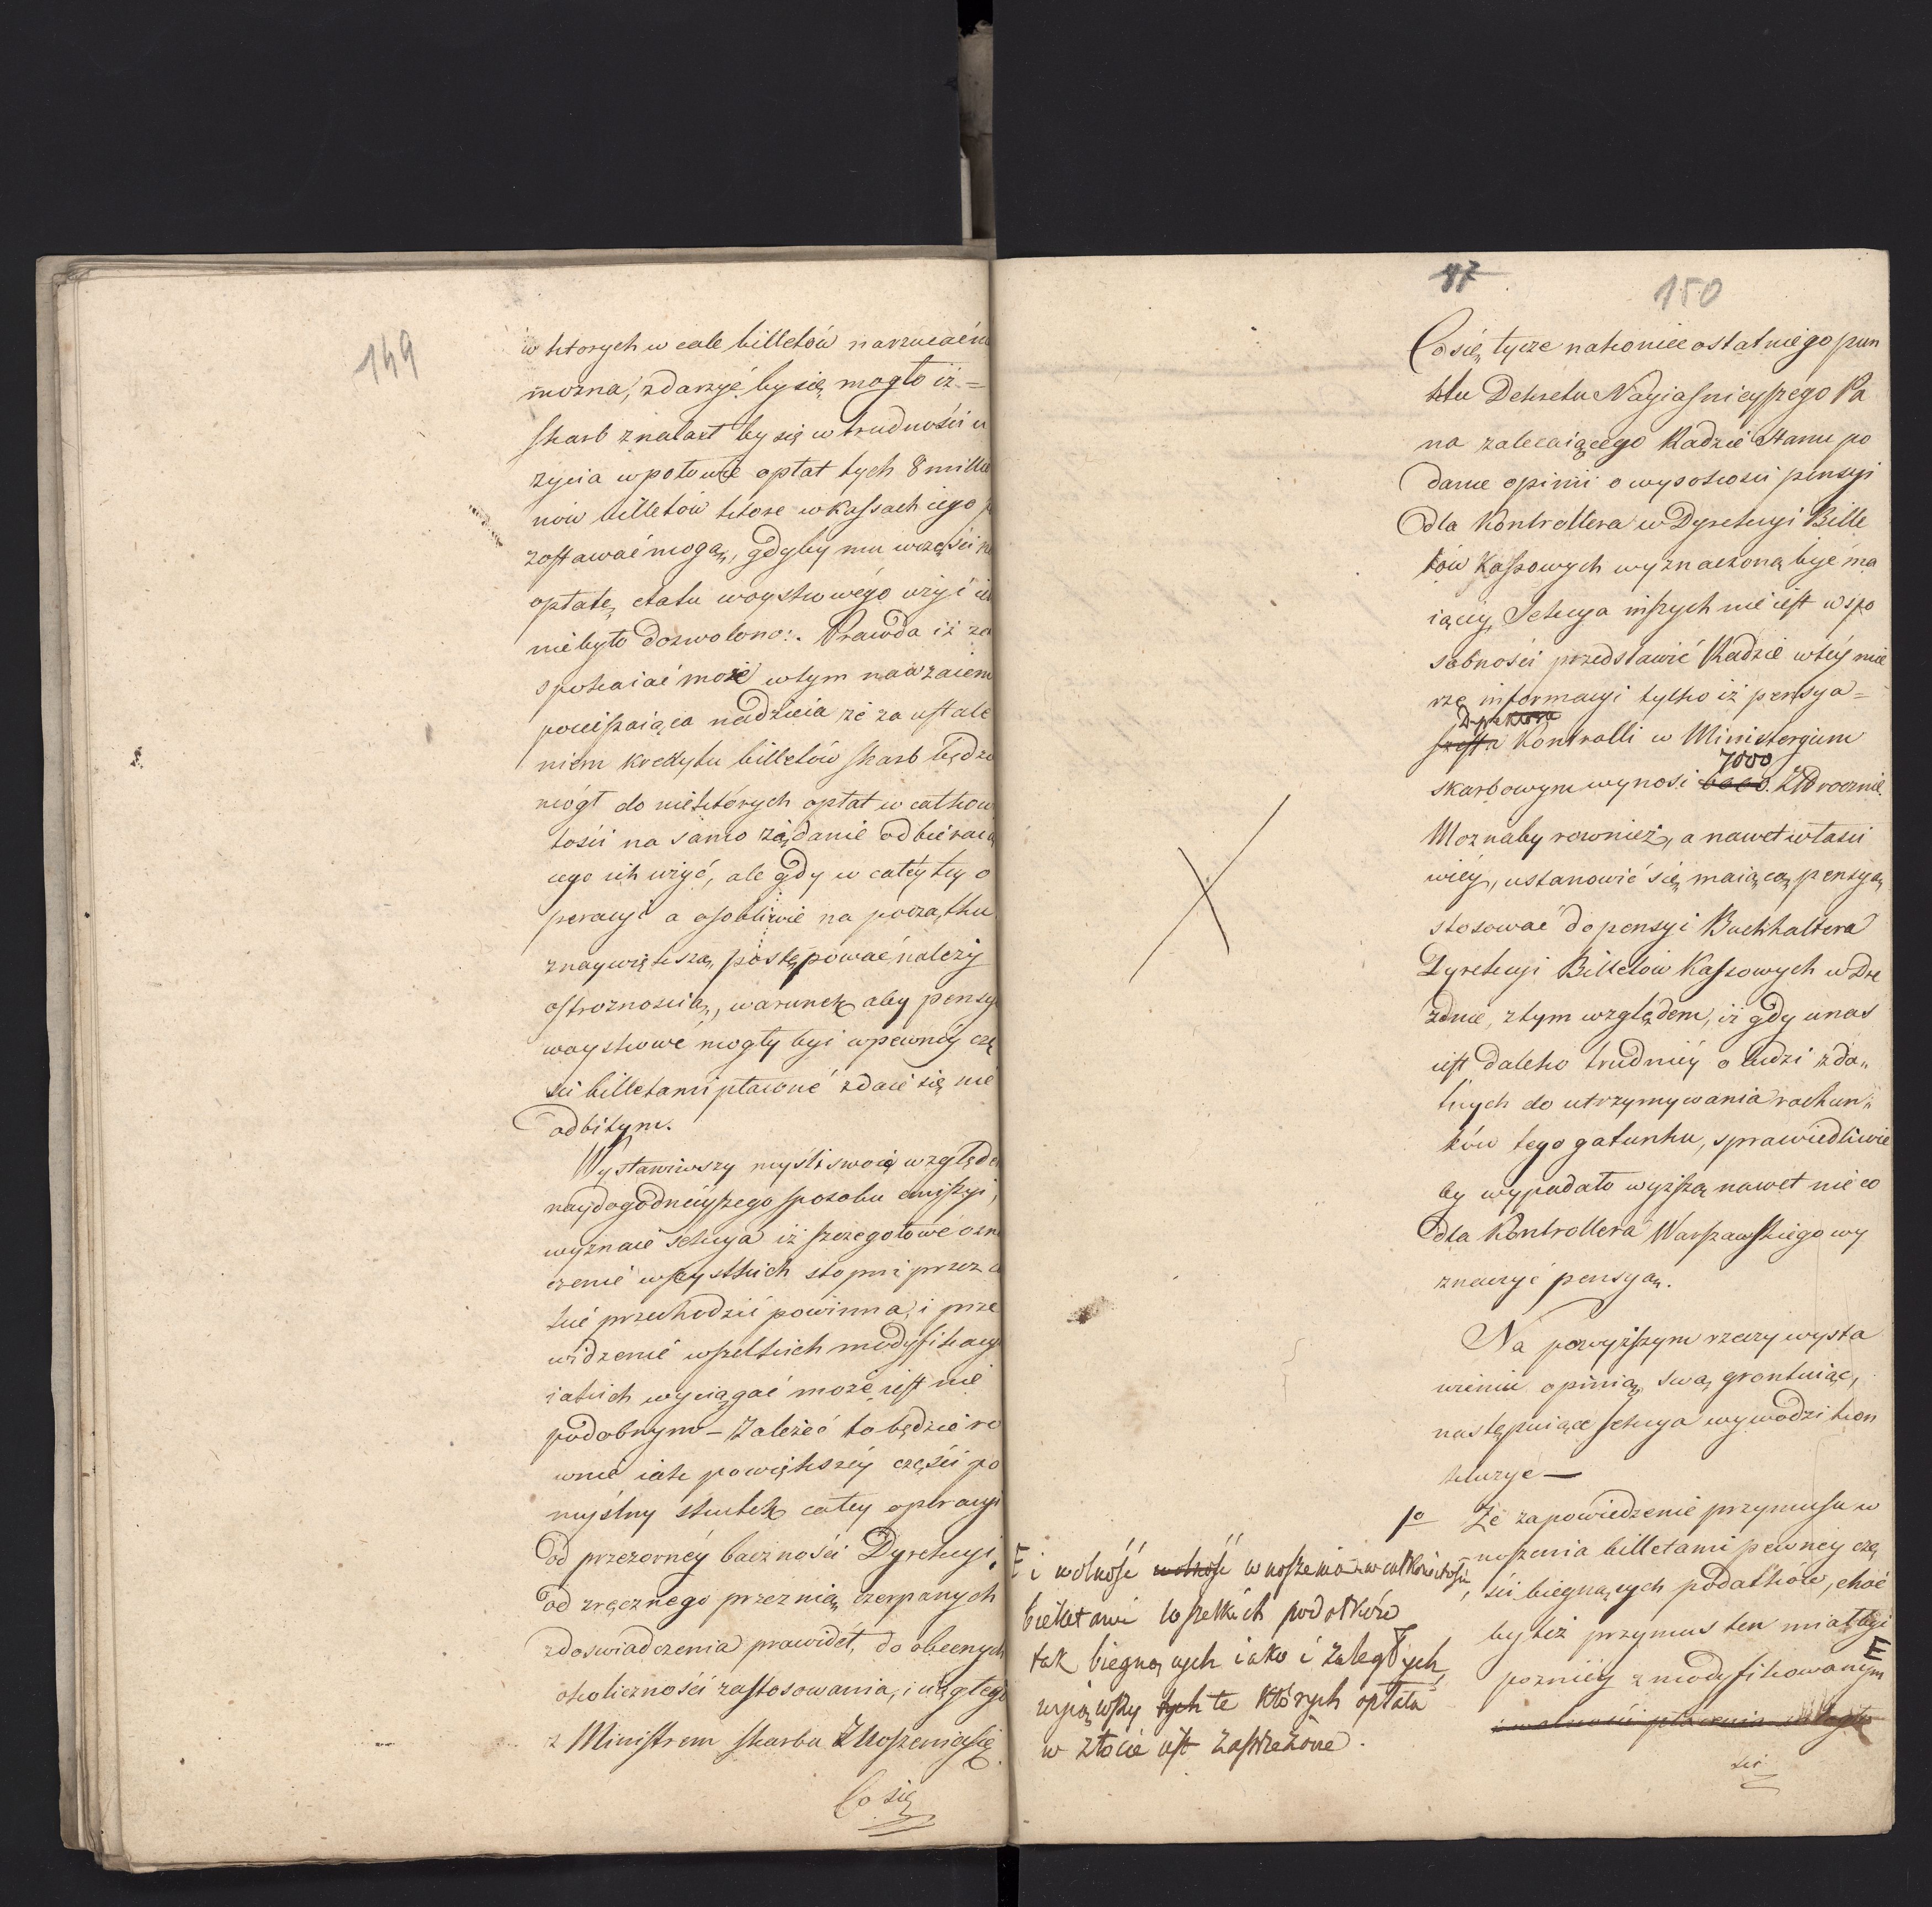 149
w ktorych w cale billetów narzucać n
można, zdarzyć by się mogło iż =
skarb znalazł by się w trudności u
życia w połowie opłat tych 8 millio
nów billetów które w kassach iego p
zostawać mogą, gdyby mu w części na
opłatę etatu woyskowego użyć ich
nie było dozwolono:. Prawda iż za
spokaiać może w tym nadzieia
pocieszaiąca nadzieia że za ustale
niem kredytu billetów skarb będzie
mógł do niektórych opłat w całkow
tości na samo żądanie odbieraią
cego ich użyć, ale gdy w całéy téy o
peracyi a osobliwie na początku
z naywiększą postępować należy
ostrożnością, warunek aby pensye
woyskowe mogły być w pewnéy czę
ści billetami płacone zdaie się nie
odbitym.
Wystawiwszy myśli swoie względem
naydogodnieyszego sposobu emissyi,
wyznaie Sekcya iż szczegołowe ozna
czenie wszystkich stopni przez ia
kie przechodzić powinna, i prze
widzenie wszelkich modyfikacyi
iakich wyciągać może iest nie
podobnym – Zależeć to będzie ró
wnie iak powiększéy części po
myślny skutek całey operacyi
od przezornéy baczności Dyrekcyi,
od zręcznego przez nią czerpanych
z doświadczenia prawideł, do obecnych
okoliczności zastosowania, i ciągłego
z Ministrem skarbu Znoszenia się.
Co się
47
150
Co się tycze nakoniec ostatniego pun
ktu Dekretu Nayiaśnieyszego Pa
na zalecaiącego Radzie Stanu po
danie opinii o wysokości pensyi
dla Kontrollera w Dyrekcyi Bille
tów Kassowych wyznaczoną być ma
iącéy, Sekcya inszych nie iest w spo
sobności przedstawić Radzie w téy mie
rze informacyi tylko iż pensya =
Dyrektora
szeffa Kontrolli w Ministeryum
7000
skarbowym wynosi 6000. Zł rocznie.
Możnaby rownież, a nawet właści
wiéy, ustanowić się maiącą pensyą
stosować do pensyi Buchhaltera
Dyrekcyi Billetów Kassowych w Dre
znie, z tym względem, iż gdy u nas
iest daleko trudniéy o ludzi zda„
tnych do utrzymywania rachun„
ków tego gatunku, sprawiedliwie
by wypadało wyższą nawet nieco
dla Kontrollera Warszawskiego wy
znaczyć pensyą.
Na powyższym rzeczy wysta
wieniu opinią swą grontuiąc,
następuiące Sekcya wywodzi kon
kluzye —
1o Że zapowiedzenie przymusu w
noszenia billetami pewnéy czę
ści biegnących podatków, choć
by też przymus ten miał być
poźniéy zmodyfikowanym E
i wolności płacenia zaległo
ści
E i wolność wolność wnoszenia w całkowitości
biletami wszelkich podatków
tak biegnących iako i zaległych,
wyiąwszy tych te których opłata
w złocie iest zastrzeżone.